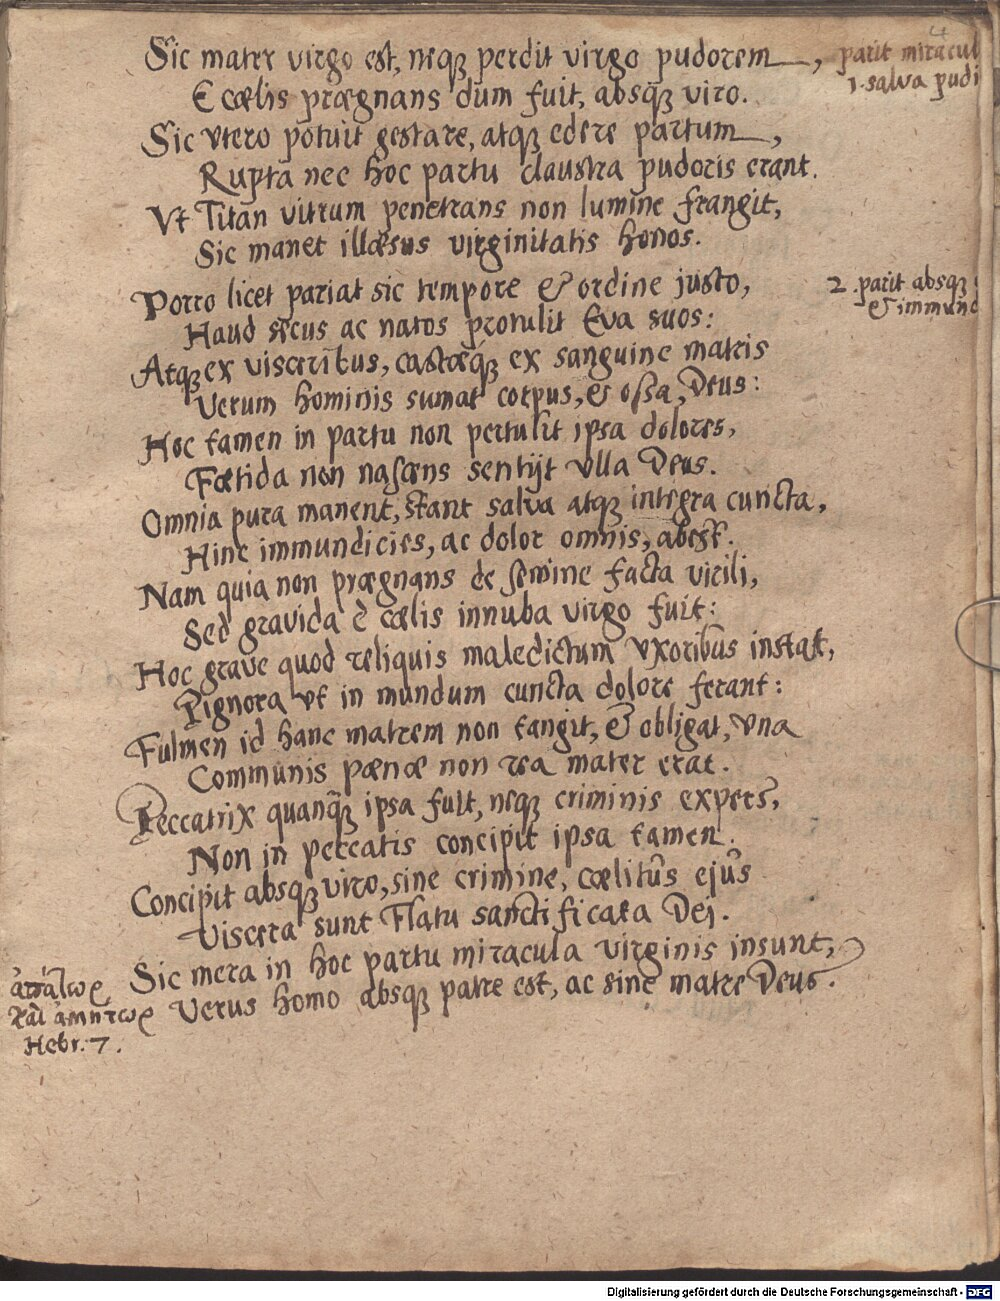 4
Sic mater virgo est, neq3 perdit virgo pudorem,
parit miracul
E cælis prægnans dum fuit, absq3 viro.
1. salva pudi
Sic vtero potuit gestare, atq3 edere partum,
Rupta nec hoc partu claustra pudoris erant.
Vt Titan vitrum penetrans non lumine frangit,
Sic manet illæsus virginitatis honos.
Porro licet pariat sic tempore & ordine justo,
2. parit absq3
& immund
Haud secus ac natos protulit Eva suos:
Atq3 ex visceribus, castæq3 ex sanguine matris
Verum hominis sumat corpus, & ossa, Deus:
Hoc tamen in partu non pertulit ipsa dolores,
Fœtida non nascens sentijt vlla Deus.
Omnia pura manent, stant salva atq3 integra cuncta,
Hinc immundicies, ac dolor omnis, abest.
Nam quia non prægnans de semine facta virili,
Sed gravida è cælis innuba virgo fuit:
Hoc grave quod reliquis maledictum vxoribus instat,
Pignora vt in mundum cuncta dolore ferant:
Fulmen id hanc matrem non tangit, & obligat, vna
Communis pœnæ non rea mater erat.
Peccatrix quanq3 ipsa fuit, neq3 criminis expers,
Non in peccatis concipit ipsa tamen.
Concipit absq3 viro, sine crimine, cœlitus ejus
Viscera sunt Flatu sanctificata Dei.
Sic mera in hoc partu miracula virginis insunt,
Verus homo absq3 patre est, ac sine matre Deus.
ἀπάτωρ
καὶ ἀμήτωρ
Hebr. 7.
Digitalisierung gefördert durch die Deutsche Forschungsgemeinschaft - DFG